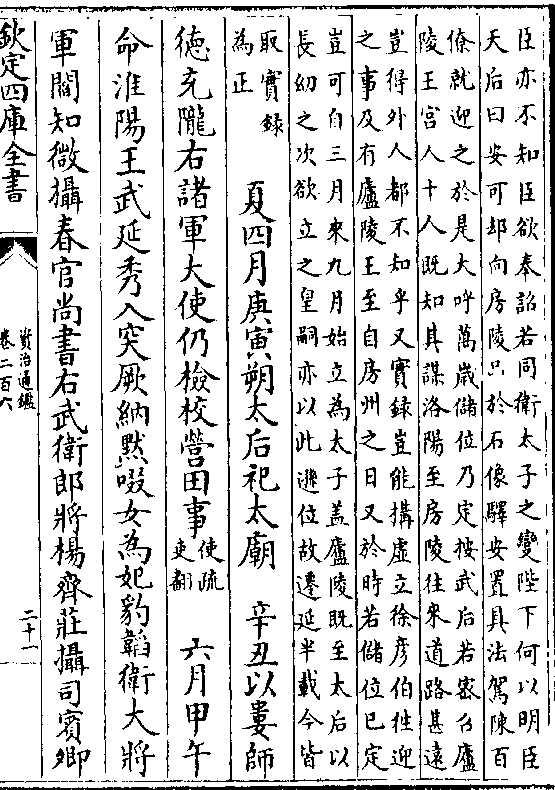 臣亦不知臣欲奉詔若同衛太子之變陛下何以明臣
天后曰安可却向房陵只於石像驛安置具法駕陳百
僚就迎之於是大呼萬歳儲位乃定按武后若宻召廬
陵王宫人十人既知其謀洛陽至房陵往來道路甚遠
豈得外人都不知乎又實録豈能搆虚立徐彦伯徃迎
之事及有廬陵王至自房州之日又於時若儲位已定
豈可自三月來九月始立為太子盖廬陵既至太后以
長幼之次欲立之皇嗣亦以此遜位故遷延半載今皆
取實録
為正
夏四月庚寅朔太后祀太廟 辛丑以婁師
徳充隴右諸軍大使仍檢校營田事使疏吏翻 六月甲午
命淮陽王武延秀入突厥納黙啜女為妃豹韜衛大將
軍閻知微攝春官尚書右武衛郎將楊齊莊攝司賓卿
欽定四庫全書
資治通鑑
卷二百六
二十一